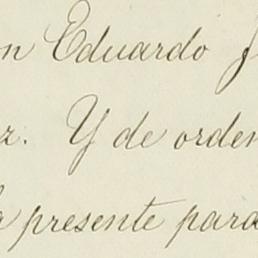 n Eduardo J
z. Y de orden
a presente para